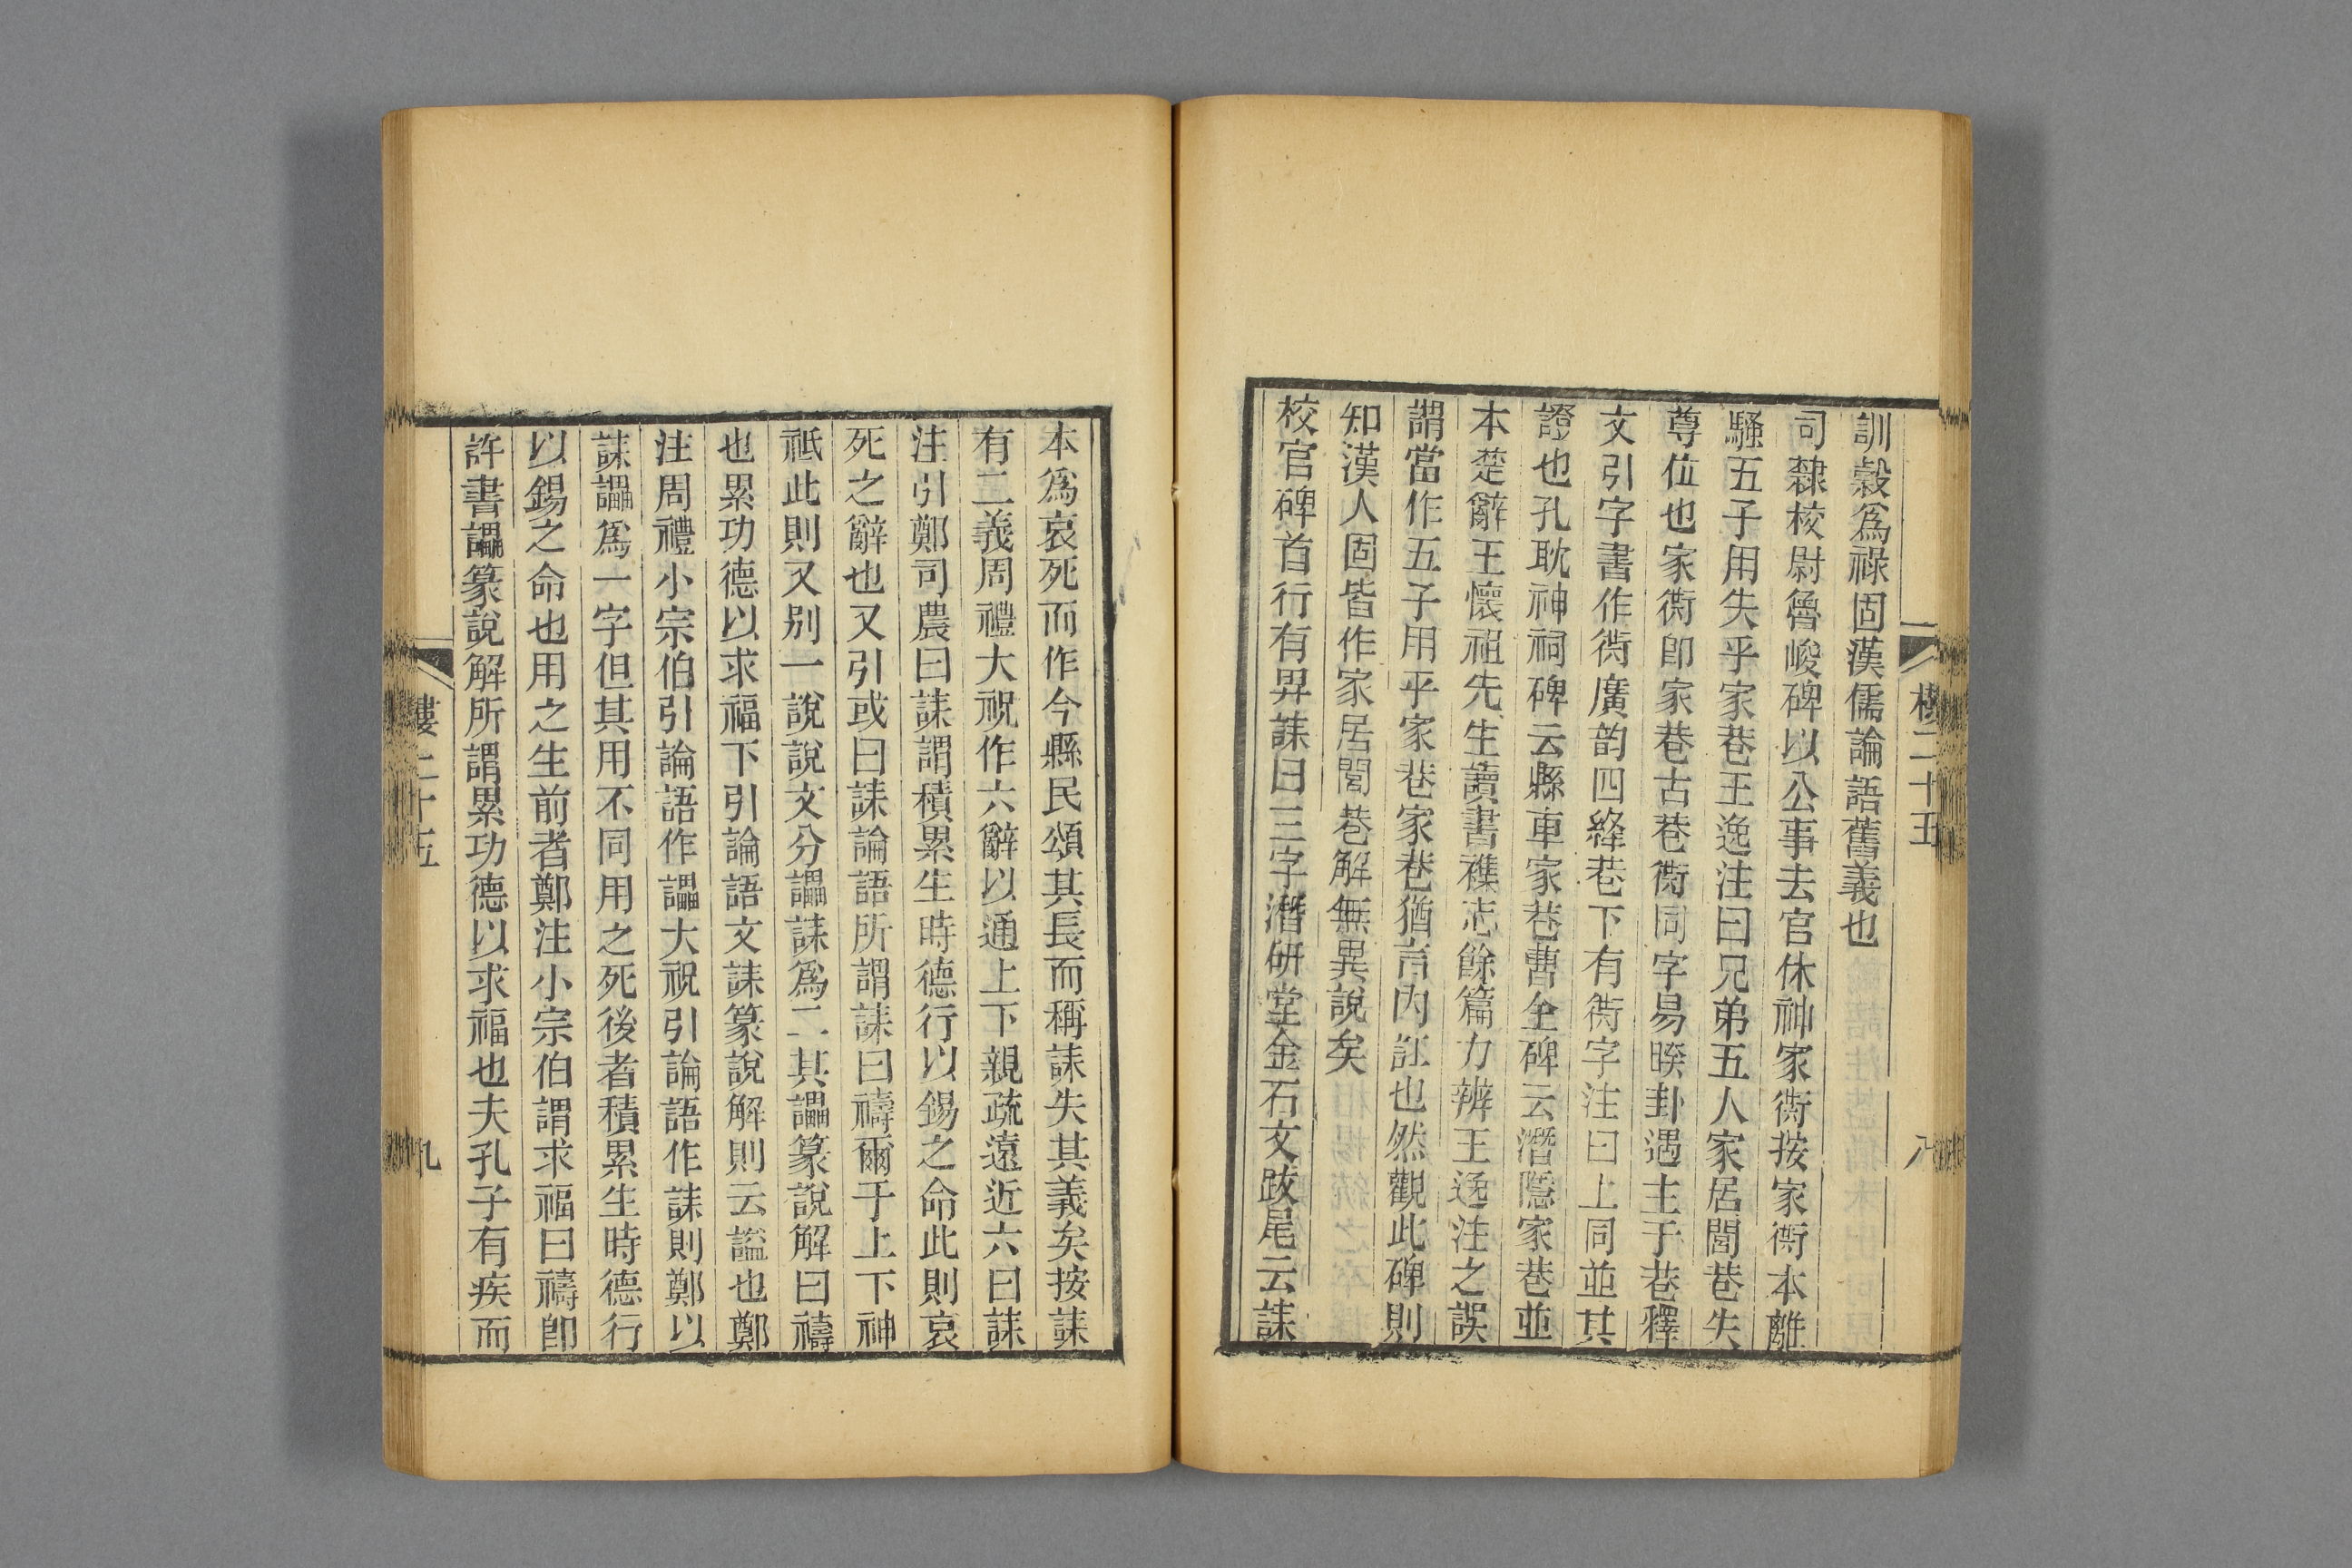 訓穀爲祿固漢儒論語舊義也
司隸校尉魯峻碑以公事去官休神家衖按家衖本離
騷五子用失乎家巷王逸注曰兄弟五人家居閭巷失
尊位也家衖卽家巷古巷衖同字易暌卦遇主于巷釋
文引字書作衖廣韵四絳巷下有衖字注曰上同並其
證也孔耽神祠碑云縣車家巷曹全碑云潛隱家巷並
本楚辭王懷祖先生讀書襍志餘篇力辨王逸注之誤
謂當作五子用乎家巷家巷猶言內訌也然觀此碑則
知漢人固皆作家居閭巷解無異說矣
校官碑首行有㒱誄曰三字潛研堂金石文跋尾云誄
樓二十五
八
本爲哀死而作今縣民頌其長而稱誄失其義矣按誄
有二義周禮大祝作六辭以通上下親疏遠近六曰誄
注引鄭司農曰誄謂積累生時德行以錫之命此則哀
死之辭也又引或曰誄論語所謂誄曰禱爾于上下神
祇此則又別一說說文分讄誄爲二其讄篆說解曰禱
也累功德以求福下引論語文誄篆說解則云謚也鄭
注周禮小宗伯引論語作讄大祝引論語作誄則鄭以
誄讄爲一字但其用不同用之死後者積累生時德行
以錫之命也用之生前者鄭注小宗伯謂求福曰禱卽
許書讄篆說解所謂累功德以求福也夫孔子有疾而
樓二十五